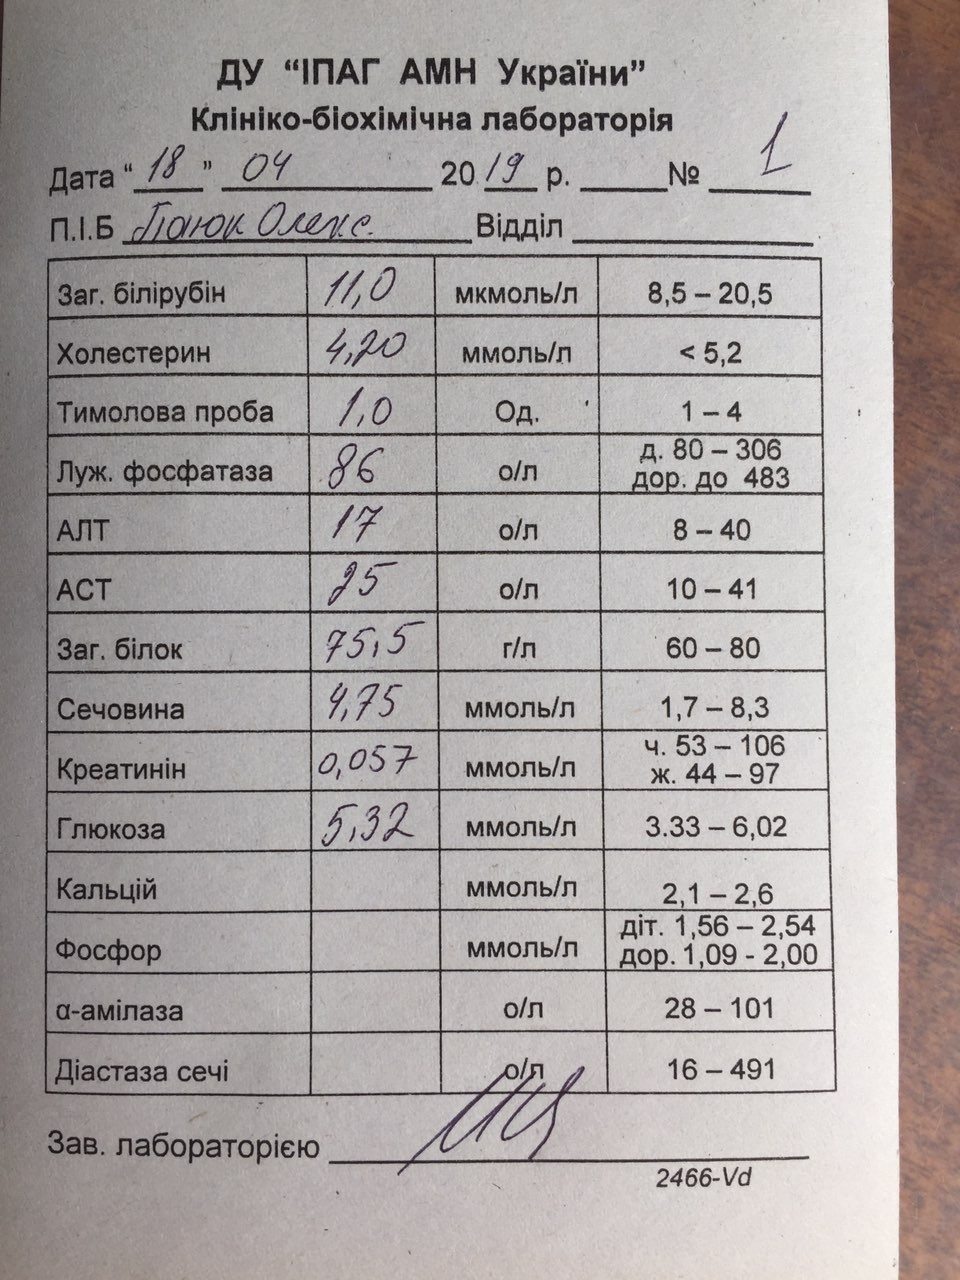 ДУ “ІПАГ АМН України”
Клініко-біохімічна лабораторія
Дата “18” 04 2019 р. № 1
П.І.Б Олекс. Відділ
Заг. білірубін 11,0 мкмоль/л 8,5 – 20,5
Холестерин 4,20 ммоль/л < 5,2
Тимолова проба 1,0 Од. 1 – 4
Луж. фосфатаза 86 о/л д. 80 – 306
дор. до 483
АЛТ 17 о/л 8 – 40
АСТ 25 о/л 10 – 41
Заг. білок 75,5 г/л 60 – 80
Сечовина 4,75 ммоль/л 1,7 – 8,3
Креатинін 0,057 ммоль/л ч. 53 – 106
ж. 44 – 97
Глюкоза 5,32 ммоль/л 3.33 – 6,02
Кальцій ммоль/л 2,1 – 2,6
Фосфор ммоль/л діт. 1,56 – 2,54
дор. 1,09 - 2,00
α-амілаза о/л 28 – 101
Діастаза сечі о/л 16 – 491
Зав. лабораторією
2466-Vd